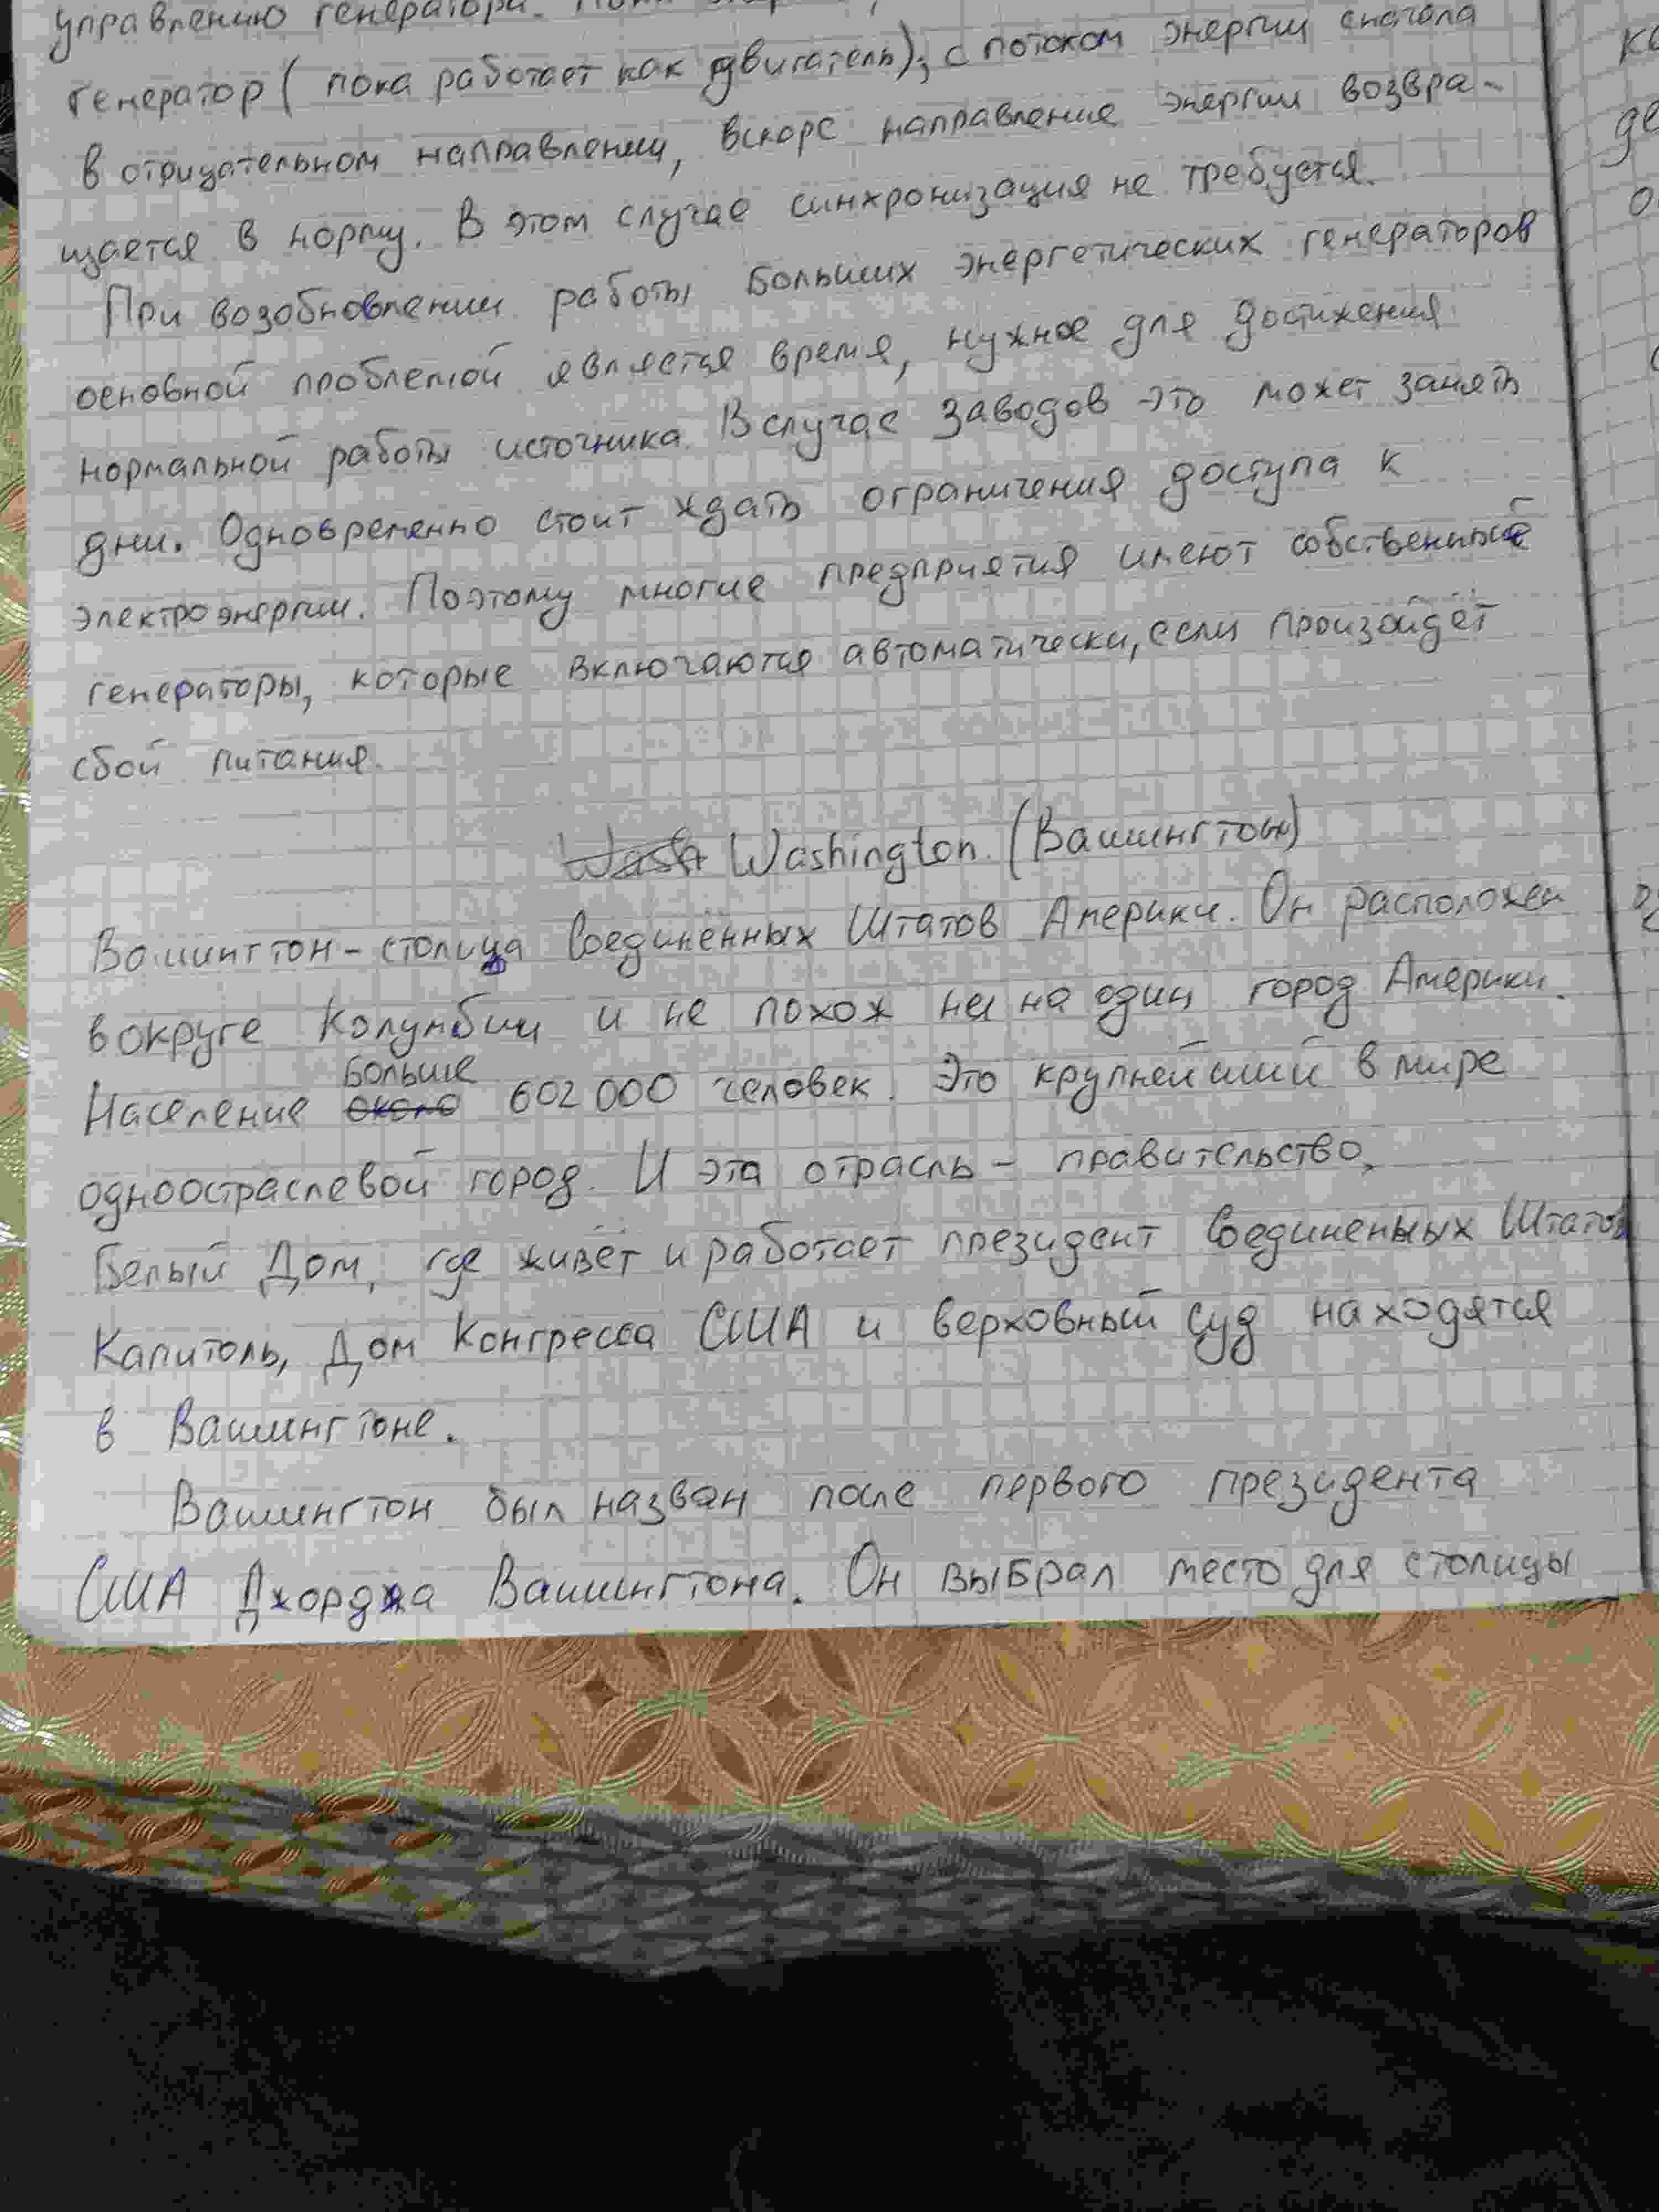 управлению генератора.
генератор (пока работает как двигатель), с потоком энергии сначала
в отрицательном направлении, вскоре направление энергии возвра-
щается в норму. В этом случае синхронизация не требуется.
При возобновлении работы больших энергетических генераторов
основной проблемой является время, нужное для достижения
нормальной работы источника. В случае заводов это может занять
дни. Одновременно стоит ждать ограничения доступа к
электроэнергии. Поэтому многие предприятия имеют собственные
генераторы, которые включаются автоматически, если произойдёт
сбой питания.
Wash Washington. (Вашингтон)
Вашингтон - столица Соединённых Штатов Америки. Он расположен
в округе Колумбии и не похож ни на один город Америки.
больше
Население около 602 000 человек. Это крупнейший в мире
одноостраслевой город. И эта отрасль - правительство.
Белый Дом, где живёт и работает президент Соединеных Штатов
Капитоль, Дом Конгресса США и верховный суд находятся
в Вашингтоне.
Вашингтон был назван после первого президента
США Джорджа Вашингтона. Он выбрал место для столицы